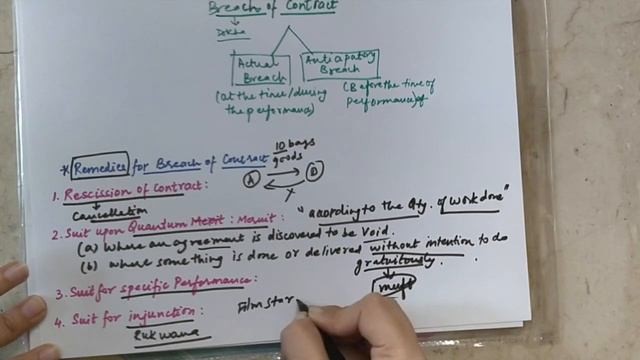 Breach of Contract
Dekha
Actual Breach
Anticipatory Breach
(at the time/during the performance)
(Before the time of performance) of
* Remedies for Breach of Contract
10 bags
goods
A D
1. Rescission of contract:
Cancellation
2. Suit upon Quantum Merit: Meruit: "according to the Qty. of work done"
(a) Where an agreement is discovered to be void.
(b) where something is done or delivered without intention to do
gratuitously.
muft
3. Suit for specific Performance:
4. Suit for injunction: Film star
Rukwana